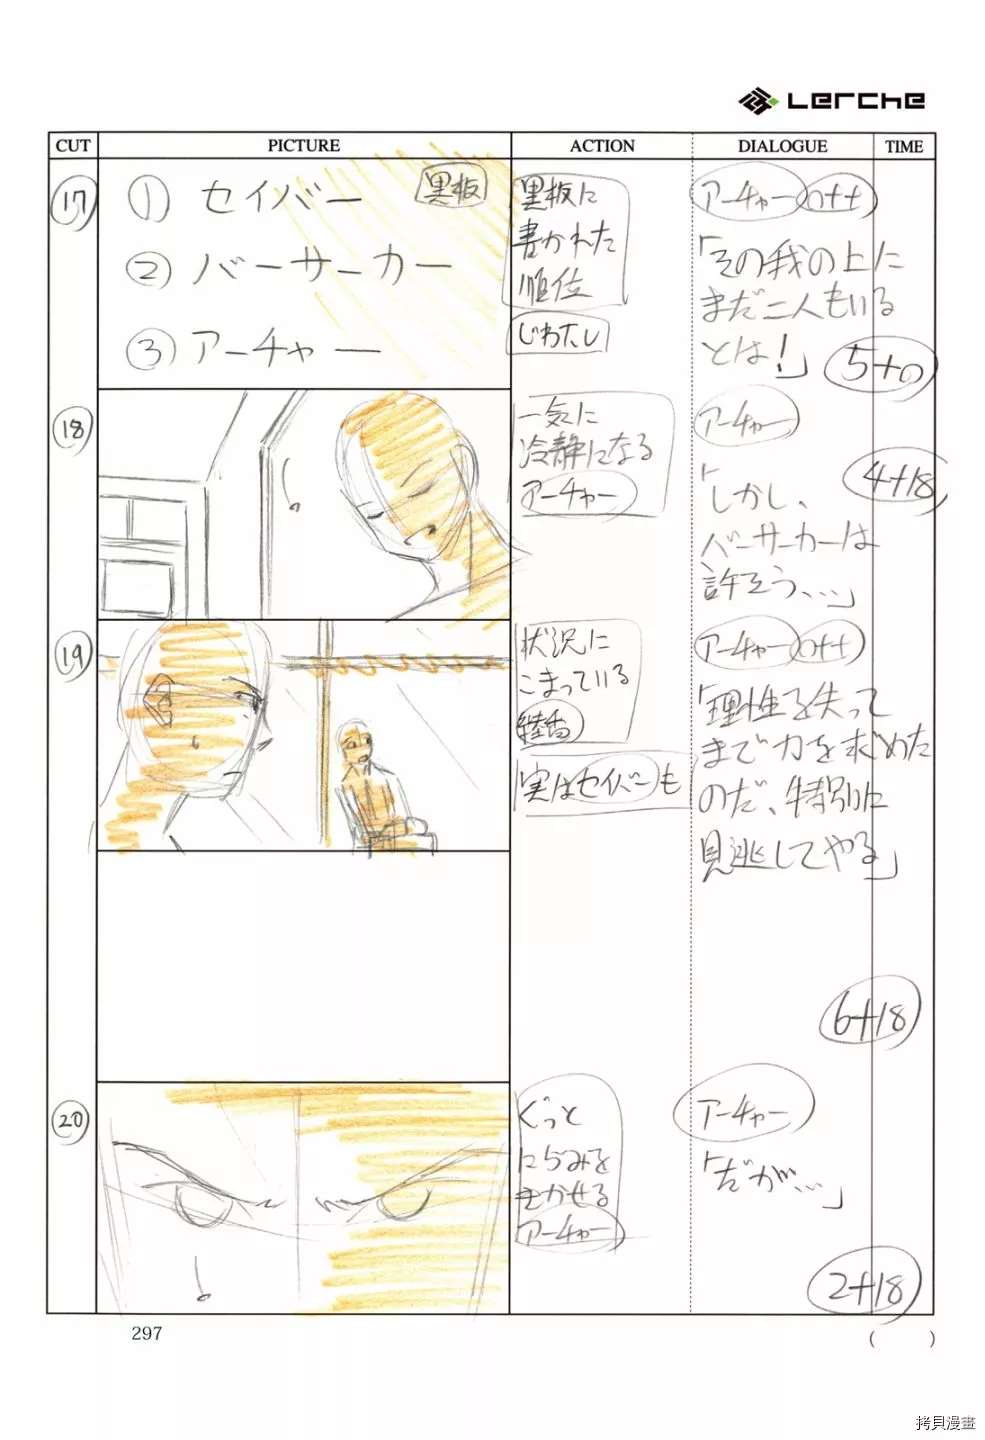 Lerche
CUT
PICTURE
ACTION
DIALOGUE
TIME
17
① セイバー
黒板
② バーサーカー
③ アーチャー
黒板に
書かれた
順位
じわたし
アーチャー off
「その我の上に
まだ二人もいる
とは!」
5+0
18
一気に
冷静になる
アーチャー
アーチャー
「しかし、
バーサーカーは
許そう、、、」
4+18
19
状況に
こまっている
実はセイバーも
アーチャー off
「理性を失って
まで力を求めた
のだ、特別に
見逃してやる」
6+18
20
ぐっと
にらみを
きかせる
アーチャー
アーチャー
「だが、、、」
2+18
297
( )
拷貝漫畫